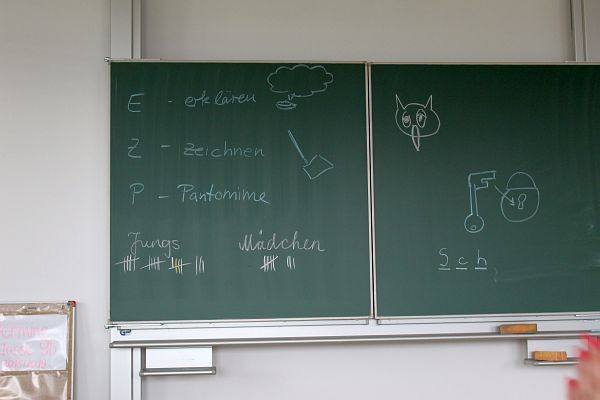 E - erklären
Z - zeichnen
P - Pantomime
Jungs Mädchen
Sch